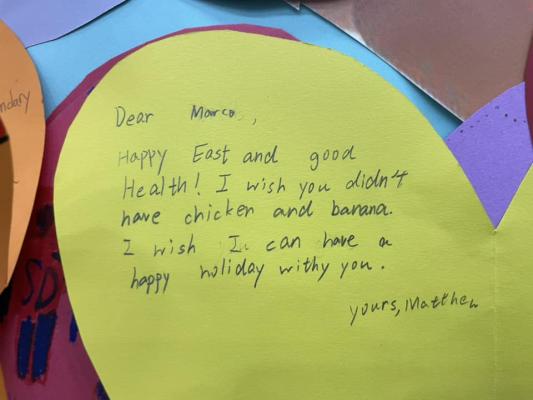 Dear Marcos,
Happy East and good
Health! I wish you didn't
have chicken and banana.
I wish I can have a
happy holiday withy you.
yours, Matthew
ndary
SD